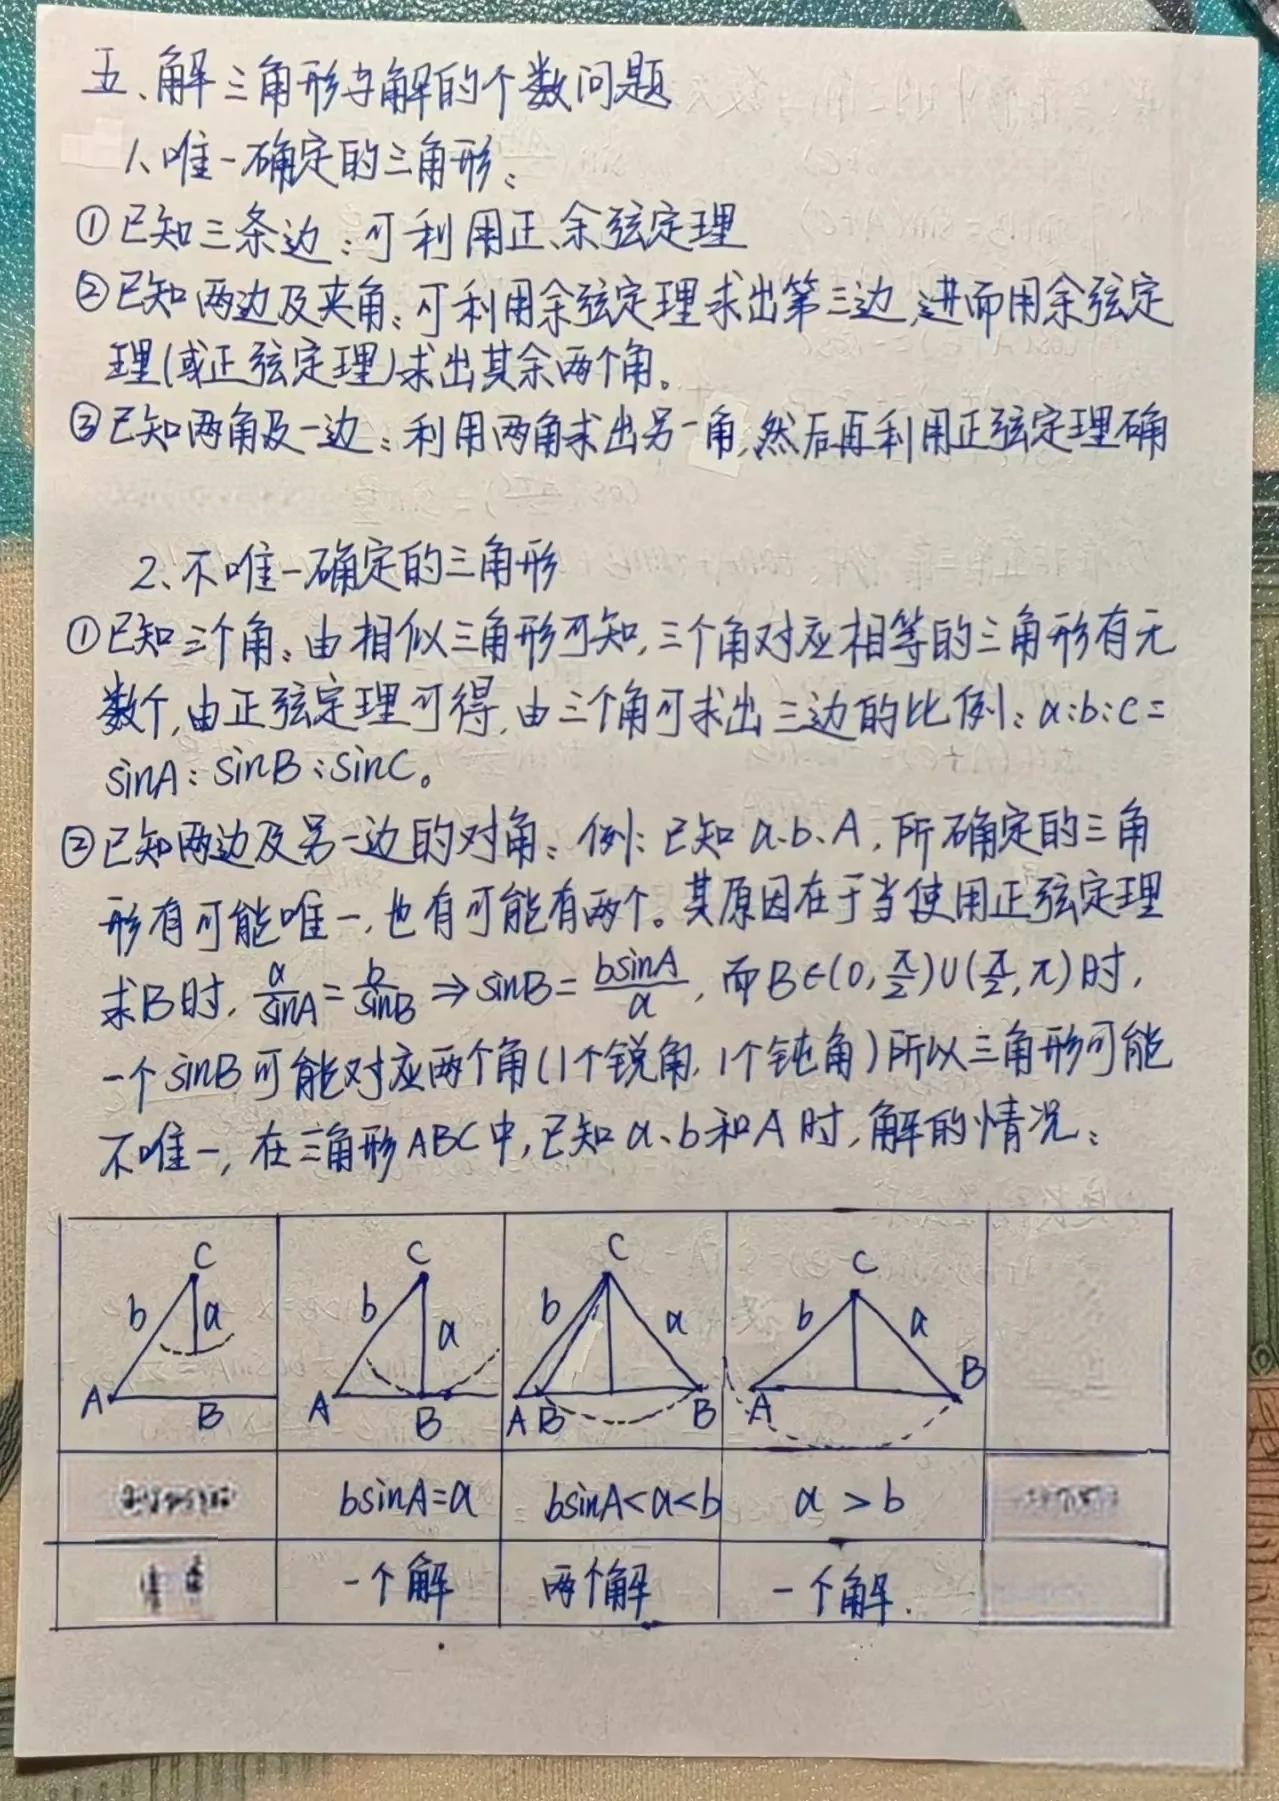 五、解三角形与解的个数问题
1、唯一确定的三角形:
①已知三条边:可利用正、余弦定理
②已知两边及夹角:可利用余弦定理求出第三边,进而用余弦定
理(或正弦定理)求出其余两个角。
③已知两角及一边:利用两角求出另一角,然后再利用正弦定理确
2、不唯一确定的三角形
①已知三个角:由相似三角形可知,三个角对应相等的三角形有无
数个,由正弦定理可得,由三个角可求出三边的比例:a:b:c=
sinA:sinB:sinC。
②已知两边及另一边的对角:例:已知a、b、A,所确定的三角
形有可能唯一,也有可能有两个。其原因在于当使用正弦定理
求B时,a/sinA=b/sinB⇒sinB=bsinA/a,而B∈(0,π/2)∪(π/2,π)时,
一个sinB可能对应两个角(1个锐角,1个钝角)所以三角形可能
不唯一,在三角形ABC中,已知a、b和A时,解的情况:
C b a A B
C b a A B
C b a A B B
C b a A B
bsinA=a bsinA<a<b a>b
一个解 两个解 一个解.